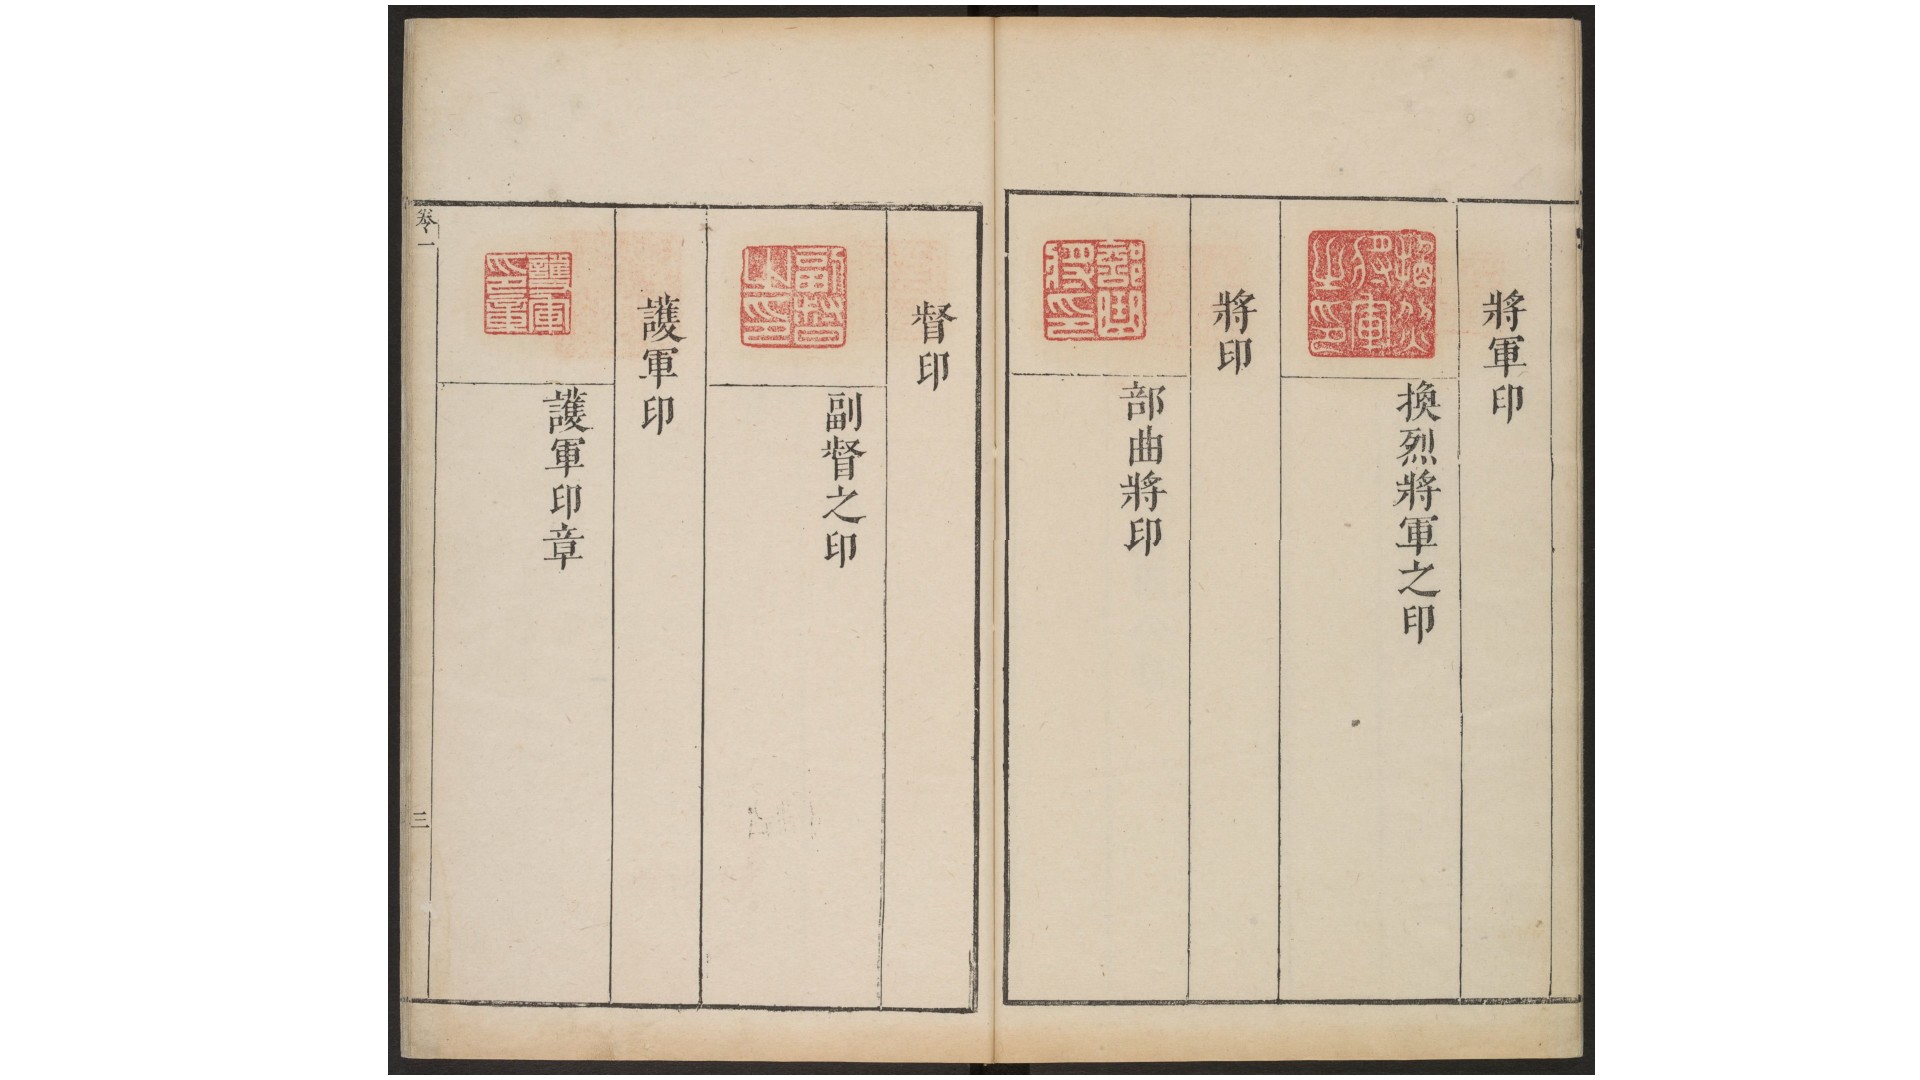 將軍印
換烈將軍之印
將印
部曲將印
督印
副督之印
護軍印
護軍印章
卷一
三